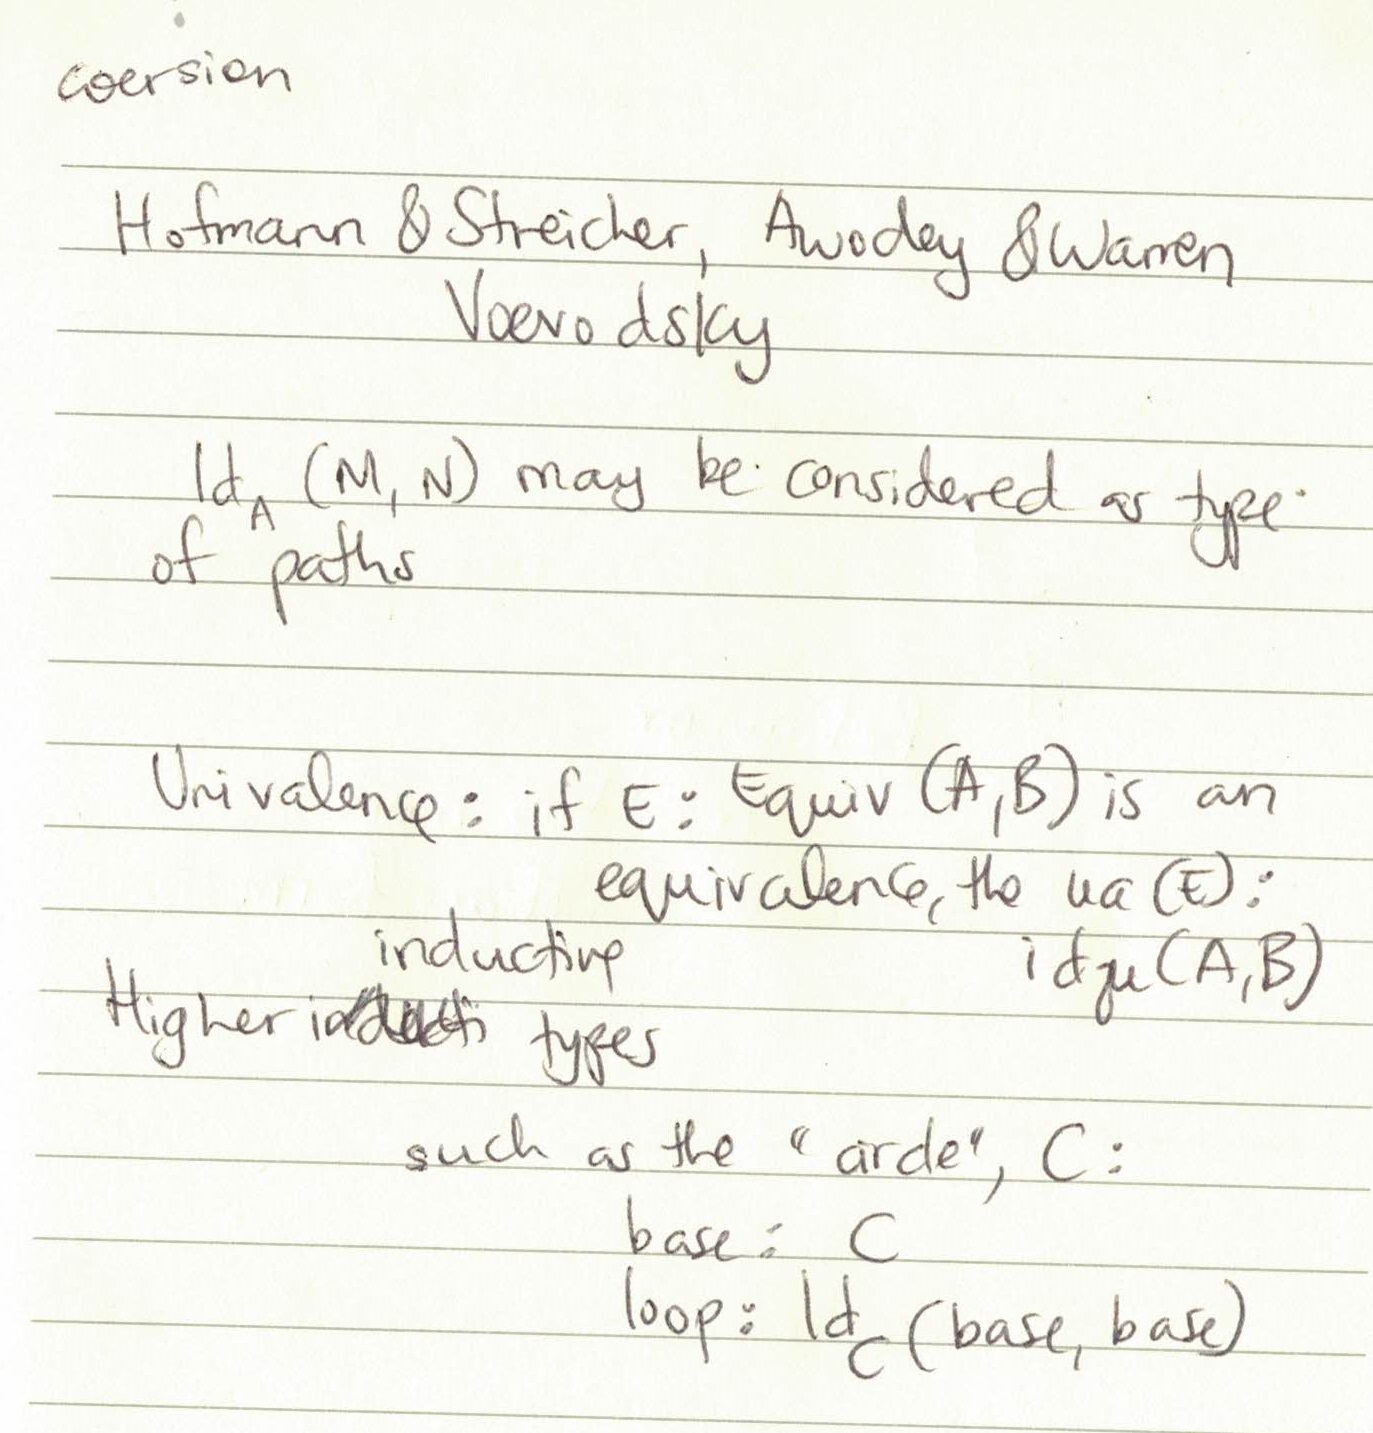 coersion
Hofmann & Streicher, Awodey & Warren
Voevodsky
Id_A (M, N) may be considered as type
of paths
Univalence: if E: Equiv (A,B) is an
equivalence, the ua (E):
inductive id_U (A,B)
Higher types
such as the "circle", C:
base: C
loop: Id_C (base, base)